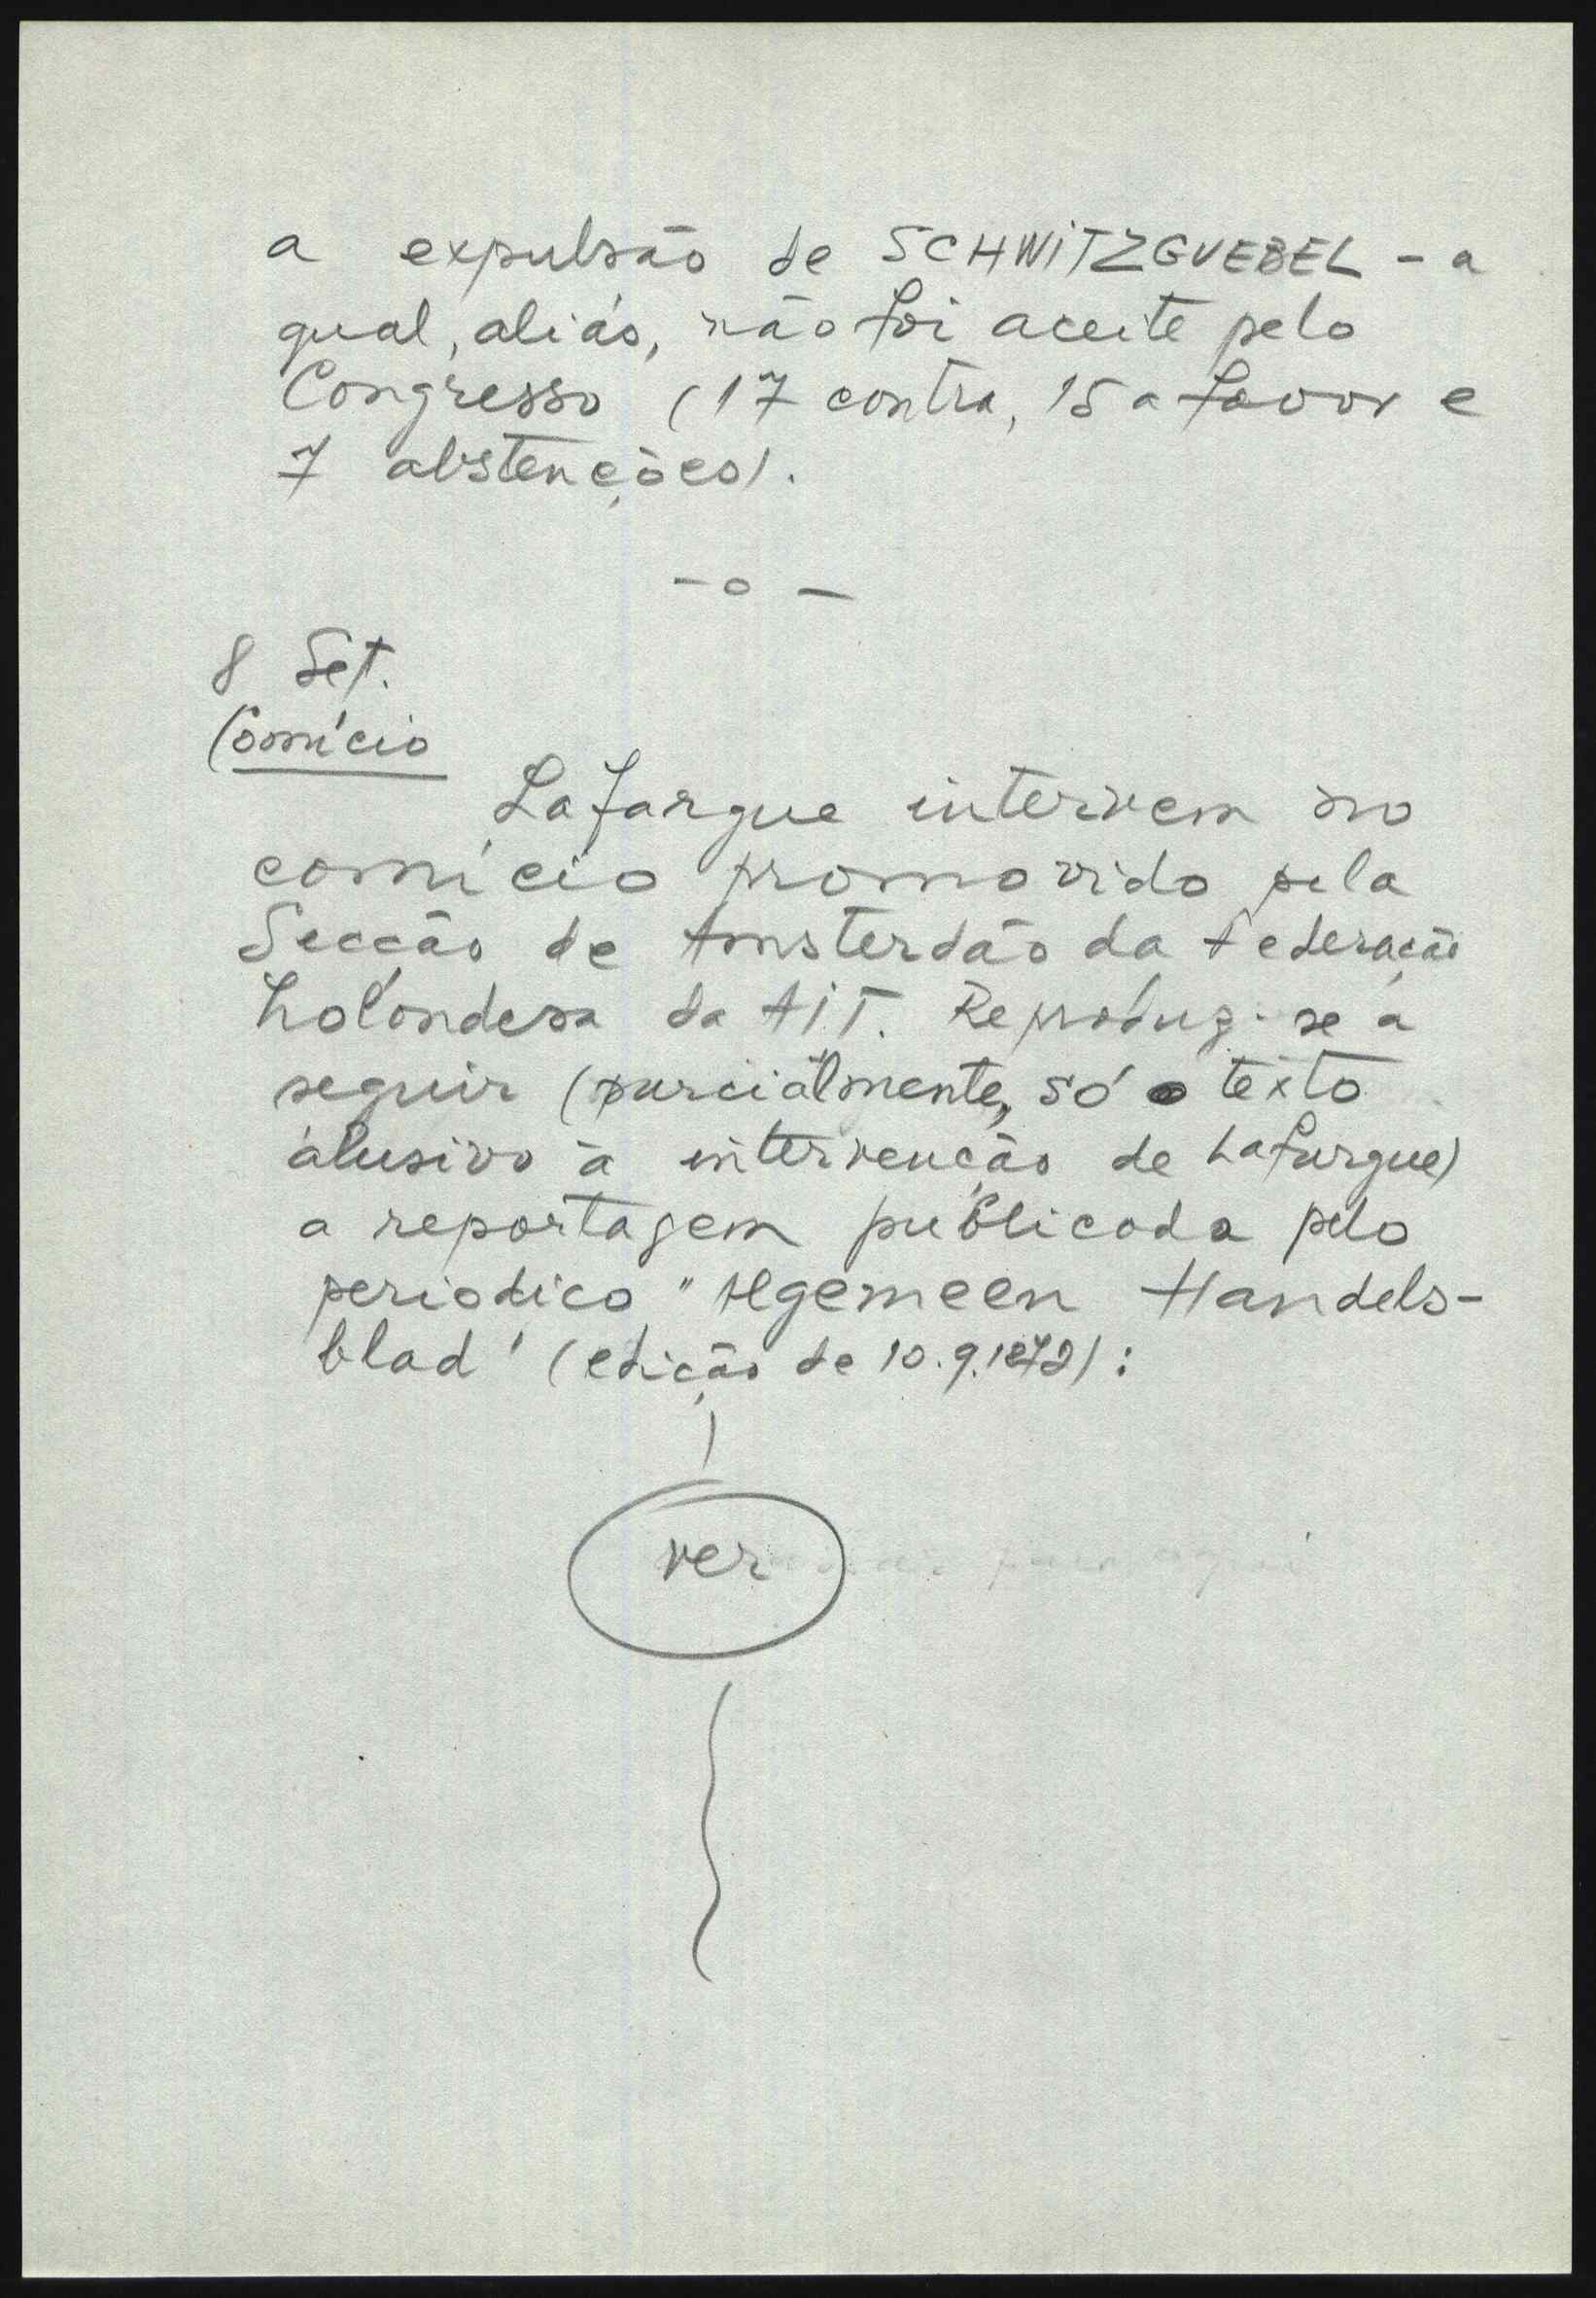 a expulsão de SCHWITZGUEBEL - a
qual, aliás, não foi aceite pelo
Congresso (17 contra, 15 a favor e
7 abstenções).
- o -
8 Set.
Comício
Lafargue intervem no
comício promovido pela
Secção de Amsterdão da Federação
holandesa da AIT. Reproduz-se a
seguir (parcialmente, só o texto
alusivo à intervenção de Lafargue)
a reportagem publicada pelo
periodico "Algemeen Handels-
blad" (edição de 10.9.1872):
ver